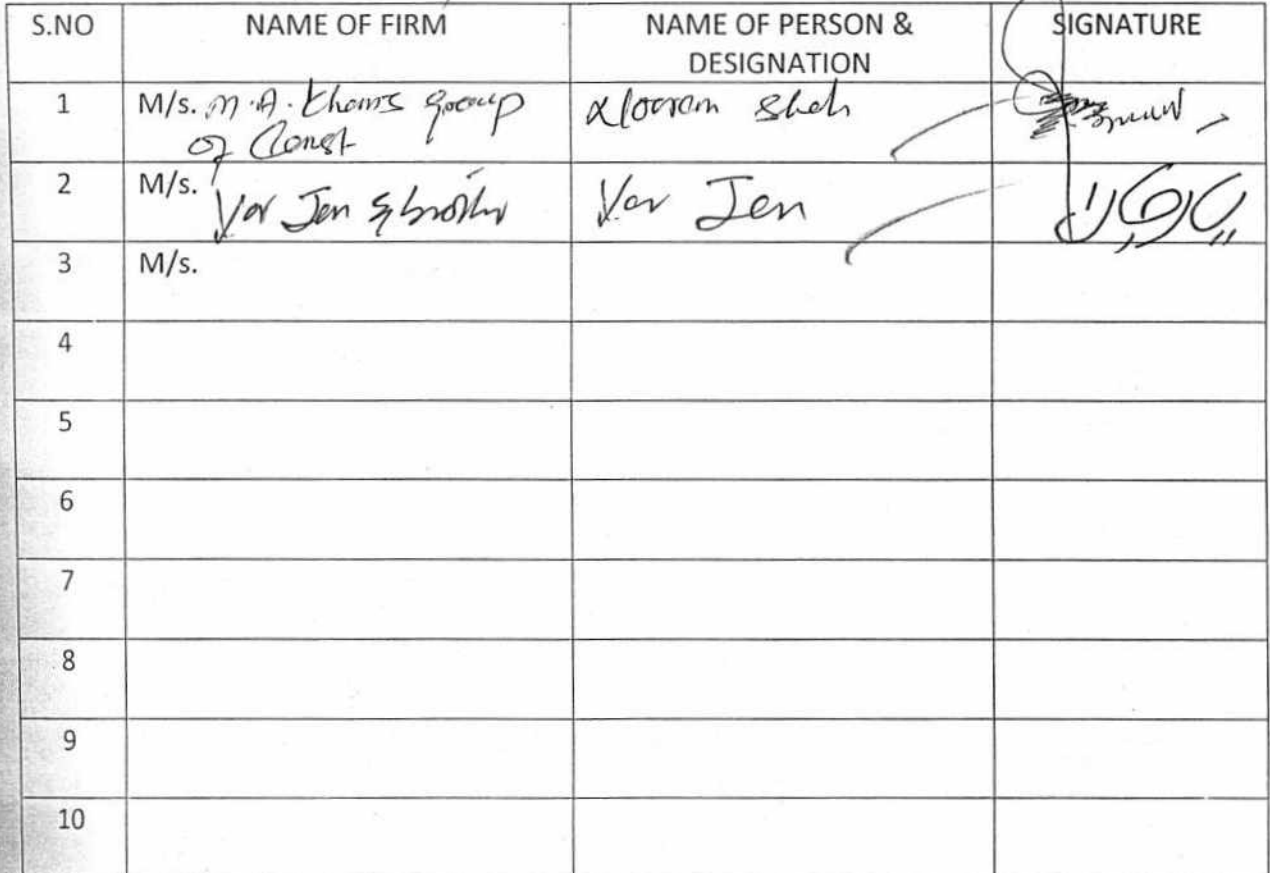 S.NO NAME OF FIRM NAME OF PERSON & DESIGNATION SIGNATURE
1 M/s. M.A. Group of Const Shah
2 M/s. Yar Jan & brother Yar Jan
3 M/s.
4
5
6
7
8
9
10